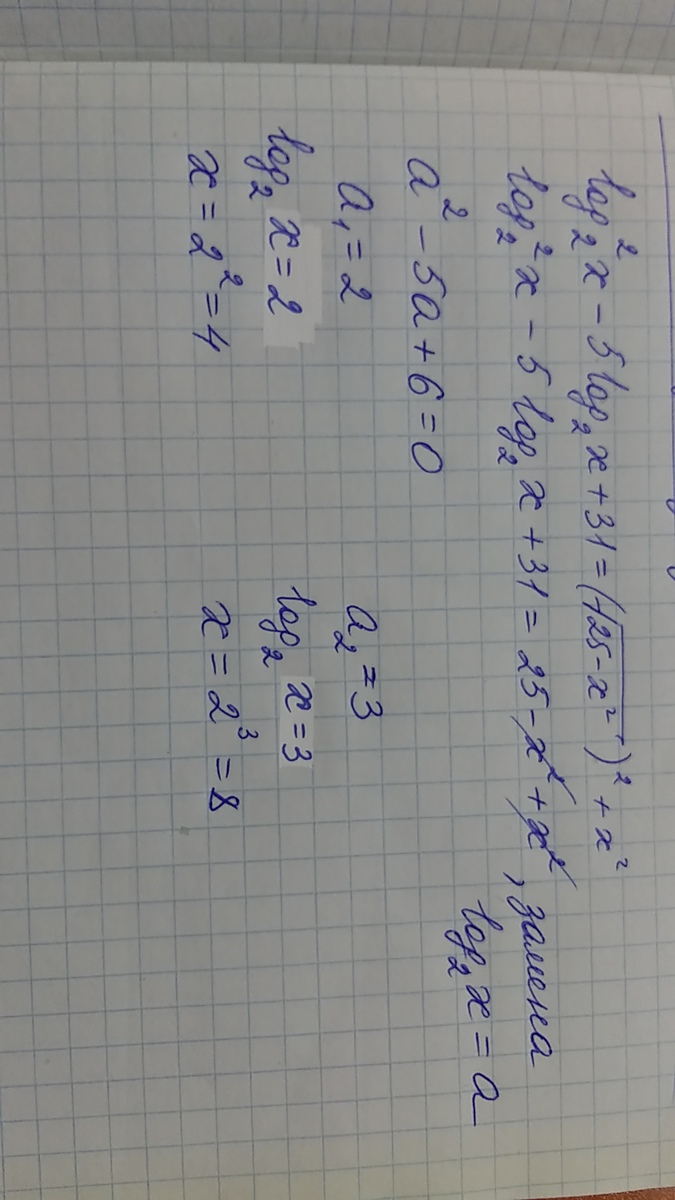 log₂²x - 5log₂x + 31 = (√25-x²)² + x²
log₂²x - 5log₂x + 31 = 25 - x² + x², замена
log₂x = a
a² - 5a + 6 = 0
a₁ = 2 a₂ = 3
log₂x = 2 log₂x = 3
x = 2² = 4 x = 2³ = 8